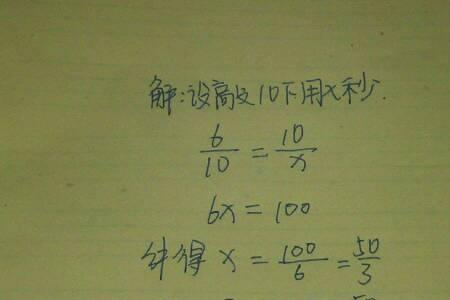 解:设敲10下用x秒.
6/10 = 10/x
6x = 100
解得 x = 100/6 = 50/3